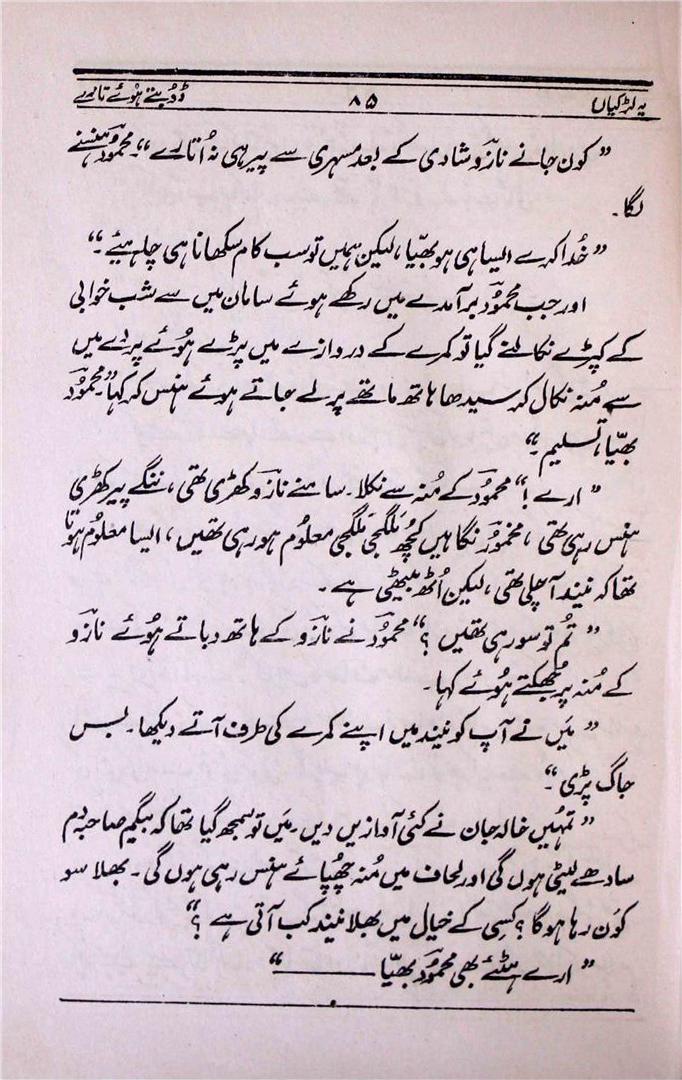 یہ لڑکیاں ۸۵ ڈوبتے ہوئے تارے
” کون جانے نازؔو شادی کے بعد مسہری سے پیر ہی نہ اُتارے “۔ محمودؔ ہنسنے
لگا۔
” خُدا کرے ایسا ہی ہو بھیّا، لیکن ہمیں تو سب کام سکھانا ہی چاہیئے۔“
اور جب محمودؔ برآمدے میں رکھے ہوئے سامان میں سے شب خوابی
کے کپڑے نکالنے گیا تو کمرے کے دروازے میں پڑے ہوئے پردے میں
سے مُنہ نکال کر سیدھا ہاتھ ماتھے پر لے جاتے ہوئے ہنس کر کہا ” محمودؔ
بھیّا، تسلیم۔“
” ارے!“ محمودؔ کے مُنہ سے نکلا۔ سامنے نازؔو کھڑی تھی، ننگے پیر کھڑی
ہنس رہی تھی، مخمور نگاہیں کچُھ مَلگجی مَلگجی معلوُم ہو رہی تھیں، ایسا معلوُم ہوتا
تھا کہ نیند آ چلی تھی، لیکن اُٹھ بیٹھی ہے۔
” تُم تو سو رہی تھیں؟“ محمودؔ نے نازؔو کے ہاتھ دباتے ہُوئے نازؔو
کے مُنہ پر جُھکتے ہُوئے کہا۔
” میَں نے آپ کو نیند میں اپنے کمرے کی طرف آتے دیکھا۔ بس
جاگ پڑی۔“
” تمہیں خالہ جان نے کئی آوازیں دیں۔ میَں تو سمجھ گیا تھا کہ بیگم صاحبہ دم
سادھے لیٹی ہوں گی اور لحاف میں مُنہ چھُپائے ہنس رہی ہوں گی۔ بھلا سو
کوَن رہا ہوگا؟ کسِی کے خیال میں بھلا نیند کب آتی ہے؟“
” ارے ہٹئے بھی محمودؔ بھیّا ــــــــــــ“